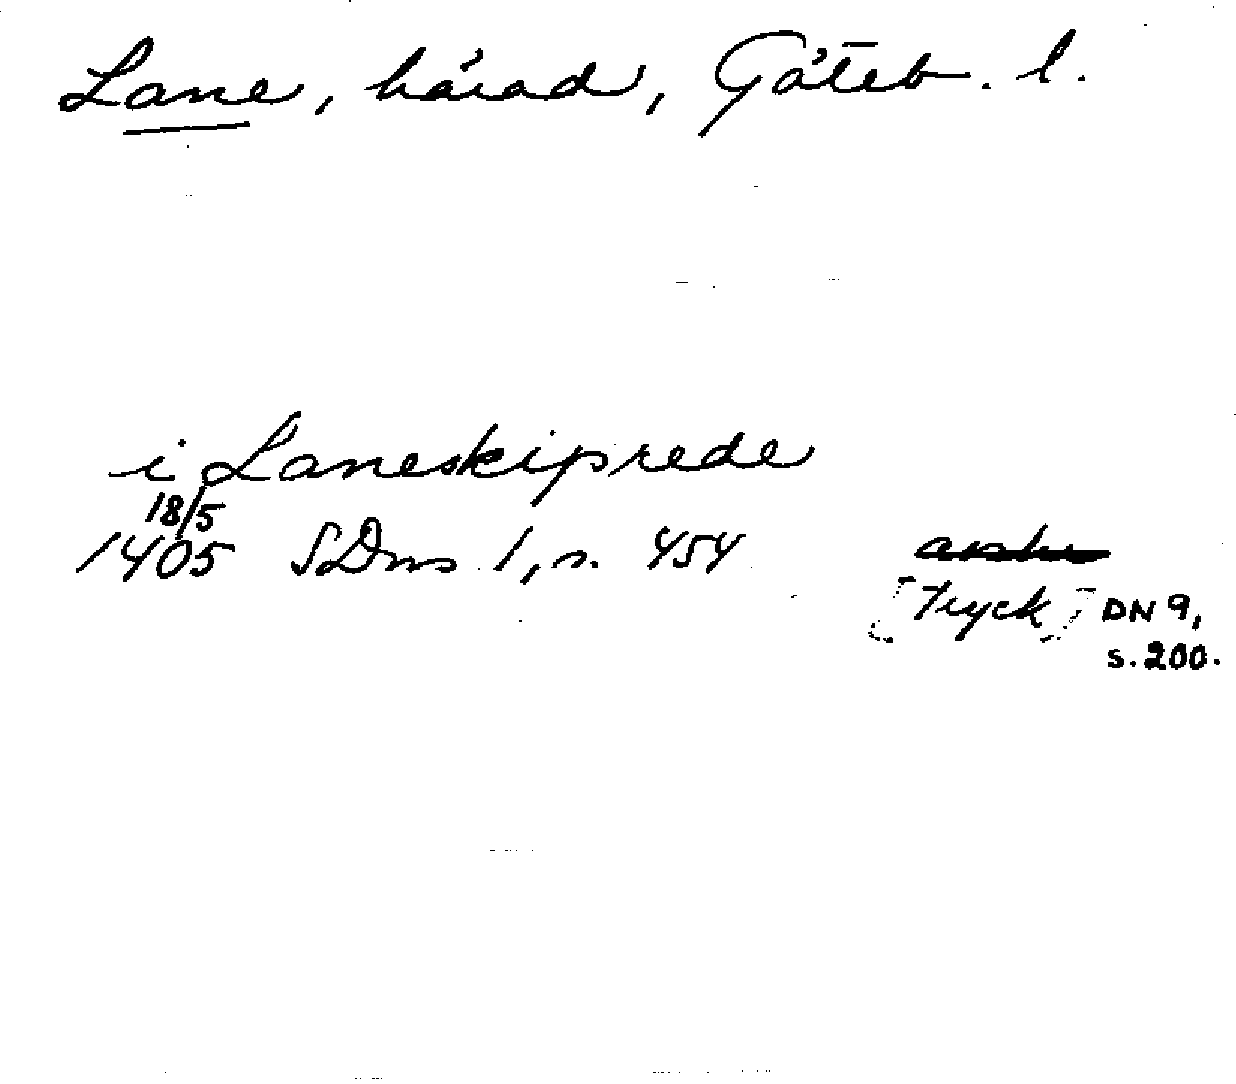 Lane, härad, Göteb. l.
i Laneskiprede
18/5
1405 SDns 1, s. 454
[tryck] DN 9,
s. 200.